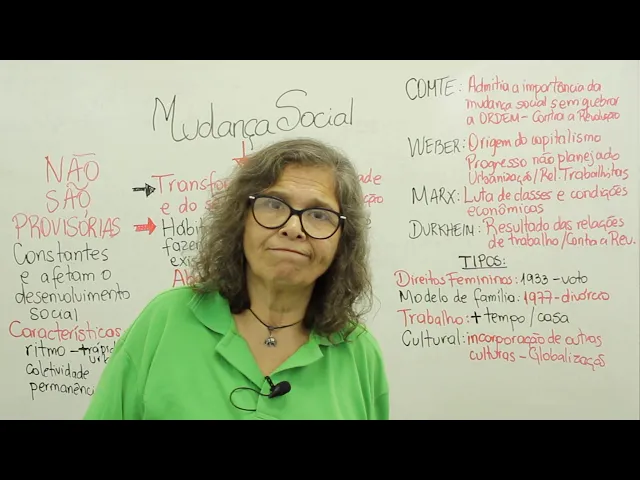 Mudança Social
NÃO
SÃO
PROVISÓRIAS
Constantes
e afetam o
desenvolvimento
social
Características
ritmo
coletividade
Transfor
e do s
Hábit
COMTE: Admitia a importância da
mudança social sem quebrar
a ORDEM - Contra a Revolução
WEBER: Origem do capitalismo
Progresso não planejado
Urbanização/Rel. Trabalhistas
MARX: Luta de classes e condições
econômicas
DURKHEIM: Resultado das relações
de trabalho/Contra a Rev.
TIPOS:
Direitos Femininos: 1933 - voto
Modelo de família: 1977 - divórcio
Trabalho: + tempo/casa
Cultural: incorporação de outras
culturas - Globalização